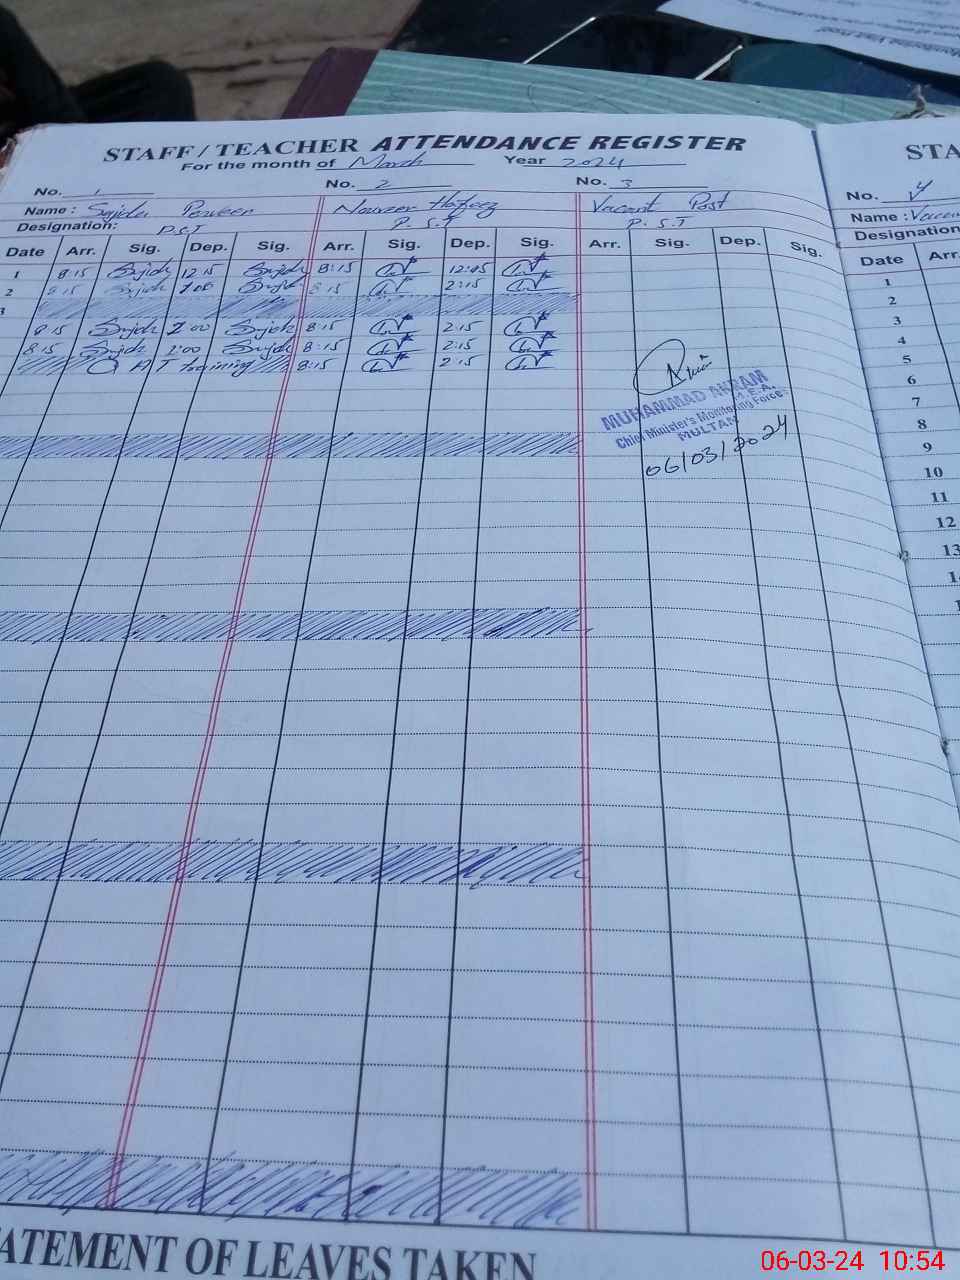 STAFF/TEACHER ATTENDANCE REGISTER
For the month of March Year 2024
No. 1 No. 2 No. 3
Name: Sajida Perveen Noureen Hafeez Vacant Post
Designation: P.S.T P.S.T P.S.T
Date Arr. Sig. Dep. Sig. Arr. Sig. Dep. Sig. Arr. Sig. Dep. Sig.
1 8:15 Sajida 12:15 Sajida 8:15 12:45
2 8:15 Sajida 2:15
3
8:15 Sajida 2:00 Sajida 8:15 2:15
8:15 Sajida 2:00 Sajida 8:15 2:15
Training 8:15 2:15
MUHAMMAD AKRAM
M.E.A.
Chief Minister's Monitoring Force
MULTAN
06/03/2024
STATEMENT OF LEAVES TAKEN
STA
No. 4
Name: Vacan
Designation
Date Arr.
1
2
3
4
5
6
7
8
9
10
11
12
13
06-03-24 10:54